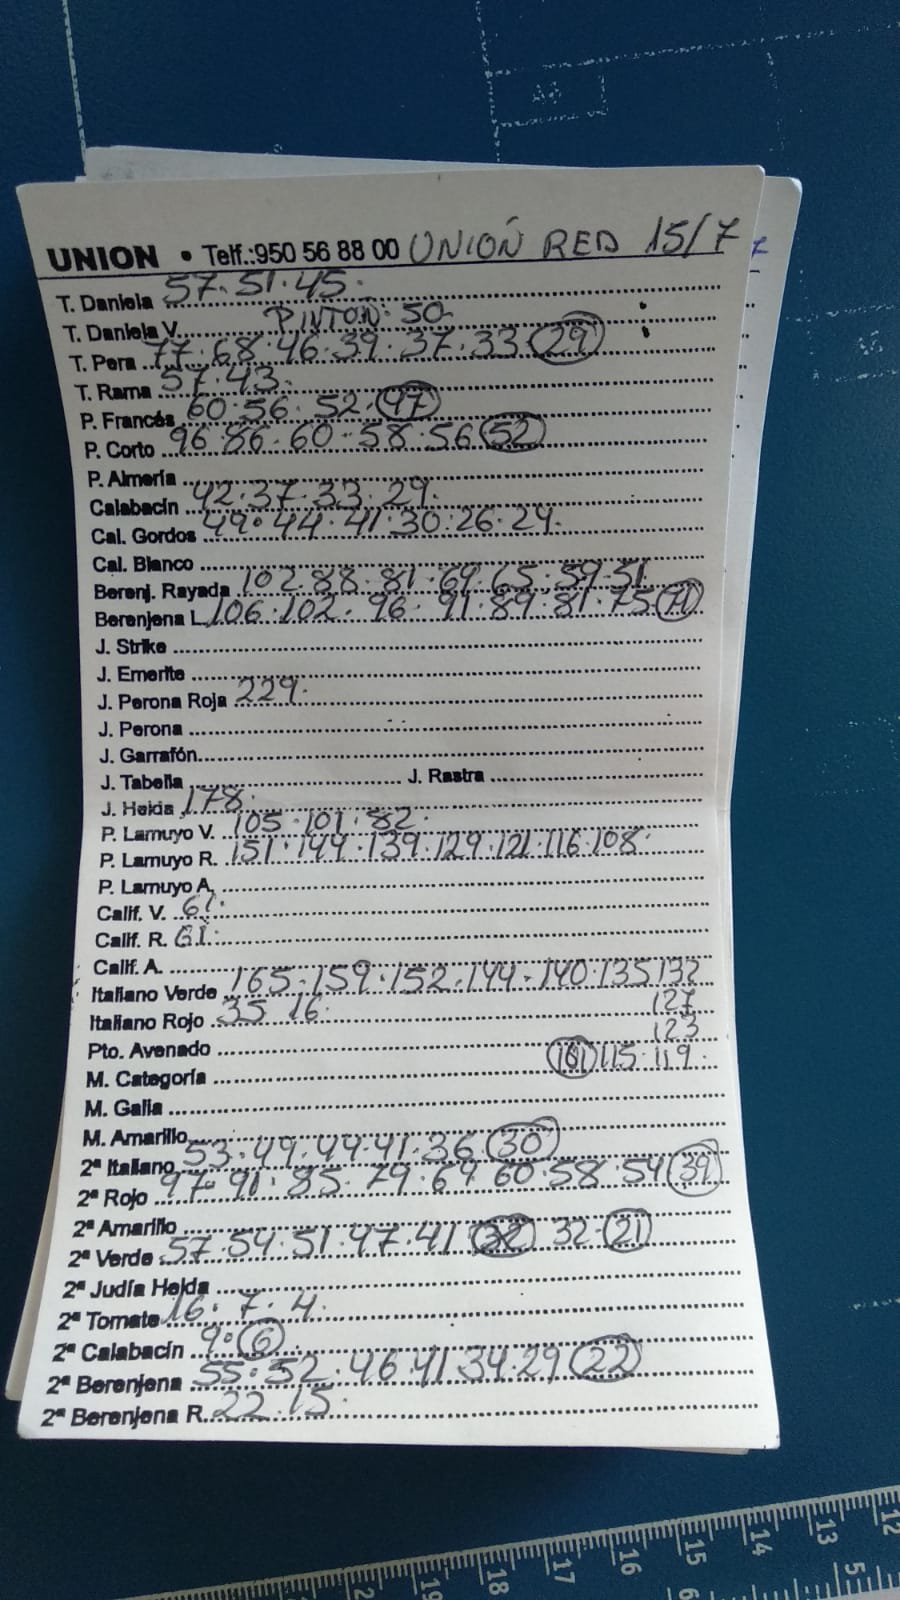 UNION • Telf.:950 56 88 00 UNION RED 15/7
T. Daniela 57.51.45.
T. Daniela V. PINTON. 50
T. Pera 77.68.46.39.37.33 29
T. Rama 57.43.
P. Francés 60.56.52. 47
P. Corto 96.86.60.58.56 52
P. Almería
Calabacín 42.37.33.29.
Cal. Gordos 49.44.41.30.26.24.
Cal. Blanco
Berenj. Rayada 102.88.81.69.65.59.51
Berenjena L. 106.102.96.91.89.81.75 71
J. Strike
J. Emerite
J. Perona Roja 229.
J. Perona
J. Garrafón
J. Tabella J. Rastra
J. Helda 178.
P. Lamuyo V. 105.101.82.
P. Lamuyo R. 151.144.139.129.121.116.108.
P. Lamuyo A.
Calif. V. 61.
Calif. R. 61.
Calif. A.
Italiano Verde 165.159.152.144.140.135 132
Italiano Rojo 35 16. 127
Pto. Avenado 123
M. Categoría 115.119.
M. Galia
M. Amarillo
2ª Italiano 53.49.44.41.36 30
2ª Rojo 97.91.85.79.69 60.58.54 39
2ª Amarillo
2ª Verde 57.54.51.47.41 32. 21
2ª Judía Helda
2ª Tomate 16.7.4.
2ª Calabacín 9. 6
2ª Berenjena 55.52.46.41.34.29 22
2ª Berenjena R. 22.15.
12
13
14
15
16
17
18
19
5
6